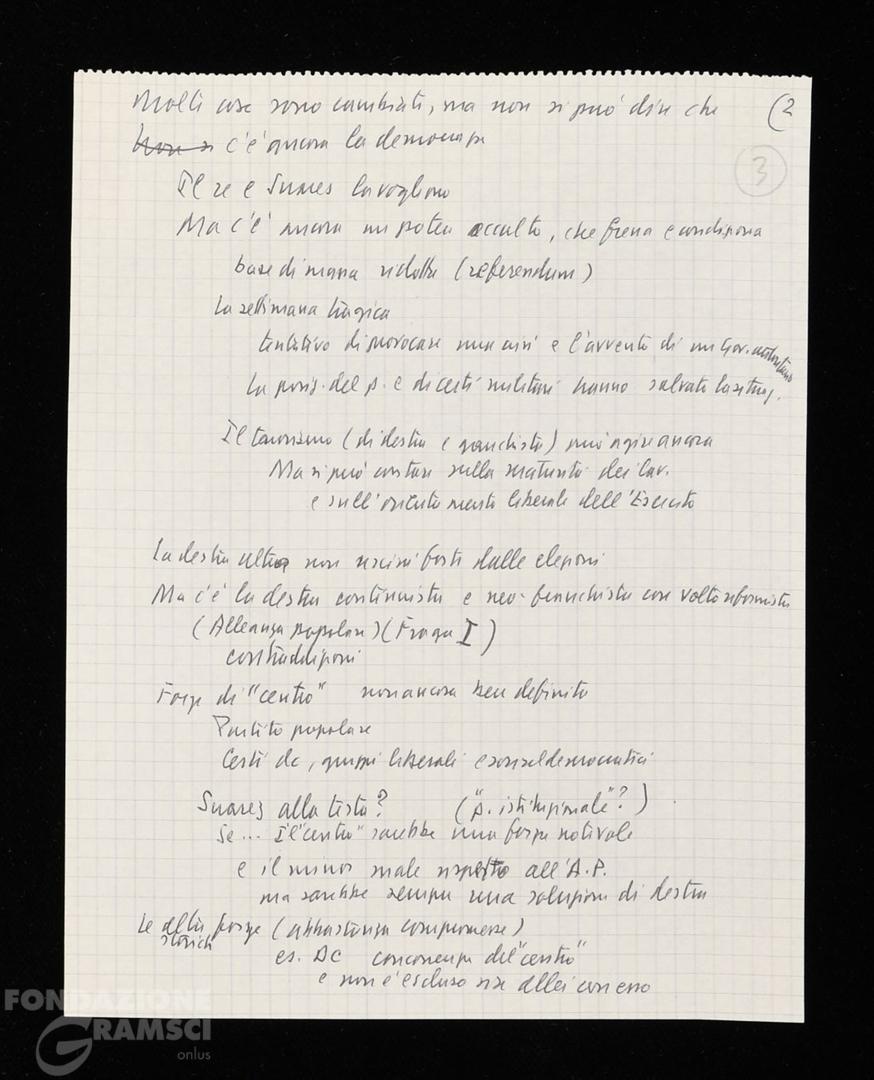 Molte cose sono cambiate, ma non si può dire che (2
Non si c'è ancora la democrazia
3
Il re e Suares la vogliono
Ma c'è ancora un potere occulto, che frena e condiziona
base di massa ridotta (referendum)
La settimana tragica
tentativo di provocare una crisi e l'avvento di un Gov. autoritario
La posiz. del p. e di certi militari hanno salvato la situaz.
Il terrorismo (di destra e gauchista) può agire ancora
Ma si può contare sulla maturità dei lav.
e sull'orientamento liberale dell'Esercito
La destra ultra non uscirà forte dalle elezioni
Ma c'è la destra continuista e neo-franchista con volto riformista
(Alleanza popolare) (Fraga I)
contraddizioni
Forze di "centro" non ancora ben definito
Partito popolare
Certi dc, gruppi liberali e socialdemocratici
Suarez alla testa? ("p. istituzionale"?)
Se... Il "centro" sarebbe una forza notevole
e il minor male rispetto all'A.P.
ma sarebbe sempre una soluzione di destra
Le altre forze (abbastanza compromesse)
storiche
es. DC concorrenza del "centro"
e non è escluso si allei con esso
FONDAZIONE
GRAMSCI
onlus